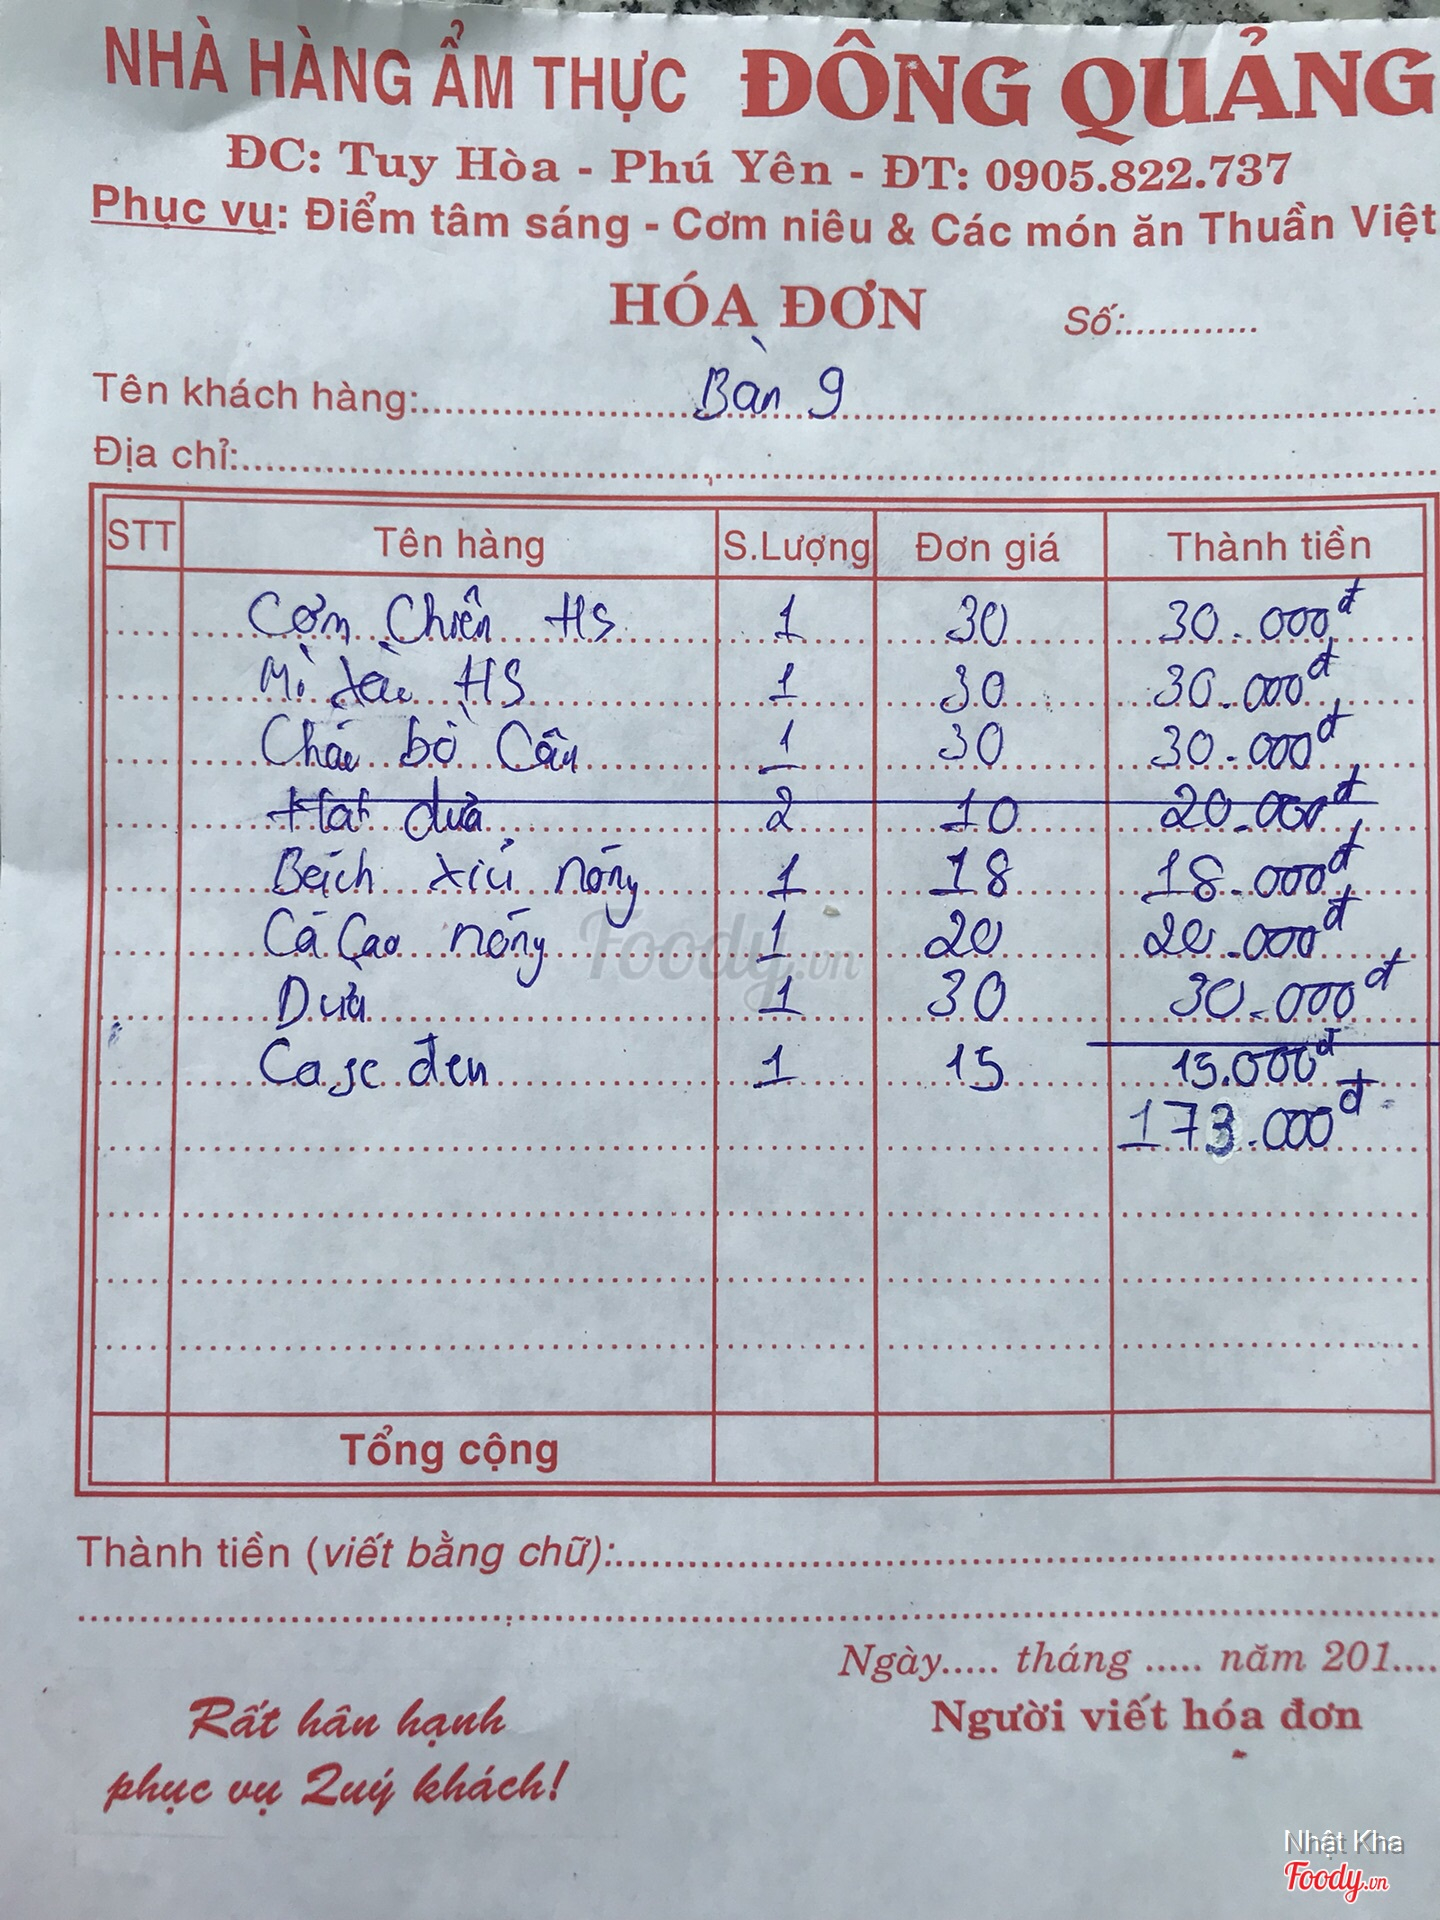 NHÀ HÀNG ẨM THỰC ĐÔNG QUẢNG
ĐC: Tuy Hòa - Phú Yên - ĐT: 0905.822.737
Phục vụ: Điểm tâm sáng - Cơm niêu & Các món ăn Thuần Việt
HÓA ĐƠN Số:............
Tên khách hàng: Bàn 9
Địa chỉ:
STT Tên hàng S.Lượng Đơn giá Thành tiền
Cơm Chiên HS 1 30 30.000đ
Mì xào HS 1 30 30.000đ
Cháo bò Câu 1 30 30.000đ
Hạt dưa 2 10 20.000đ
Bạch xỉu nóng 1 18 18.000đ
Ca Cao nóng 1 20 20.000đ
Dừa 1 30 30.000đ
Cafe đen 1 15 15.000đ
173.000đ
Foody.vn
Tổng cộng
Thành tiền (viết bằng chữ):
Ngày..... tháng ..... năm 201....
Người viết hóa đơn
Rất hân hạnh
phục vụ Quý khách!
Nhật Kha
Foody.vn